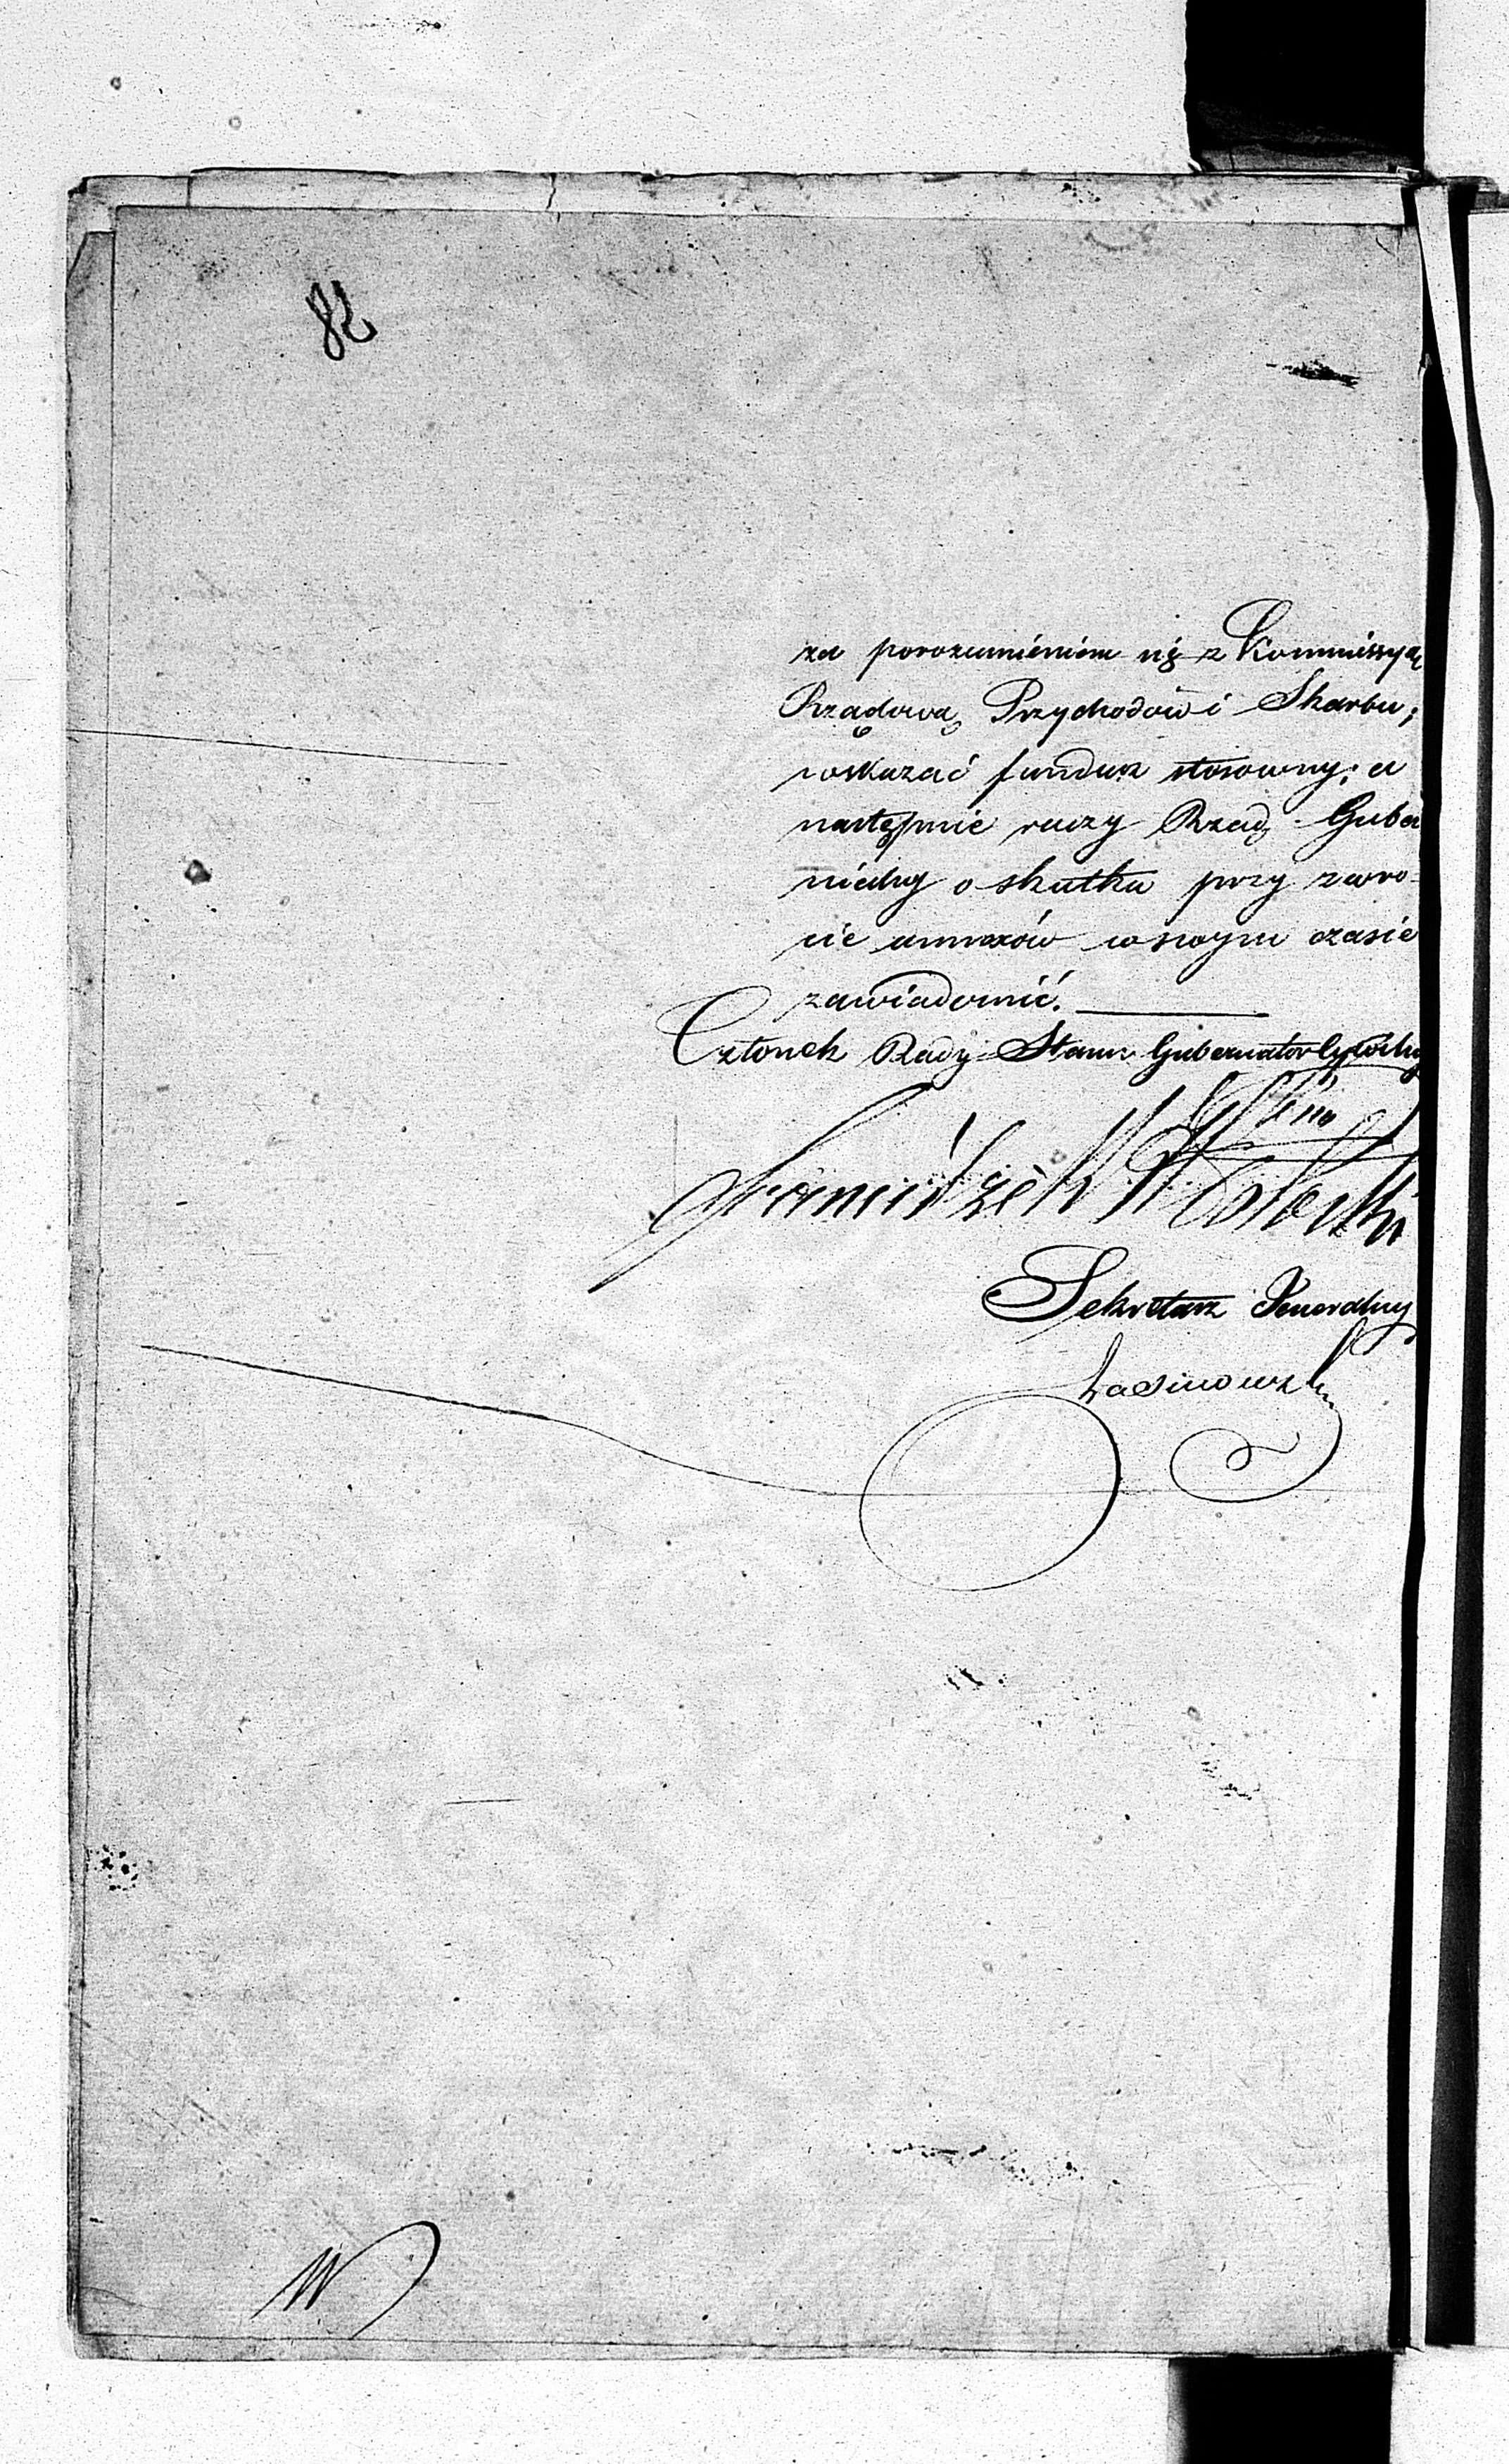 82
za porozumieniem się z Kommissyą
Rządową Przychodów i Skarbu;
wskazać fundusz stosowny; a
następnie raczy Rząd Guber
nialny o skutku przy zwro-
cie annexów w swym czasie
zawiadomić.
Członek Rady Stanu Gubernator Cywilny
Franciszek Potocki
Sekretarz Jeneralny